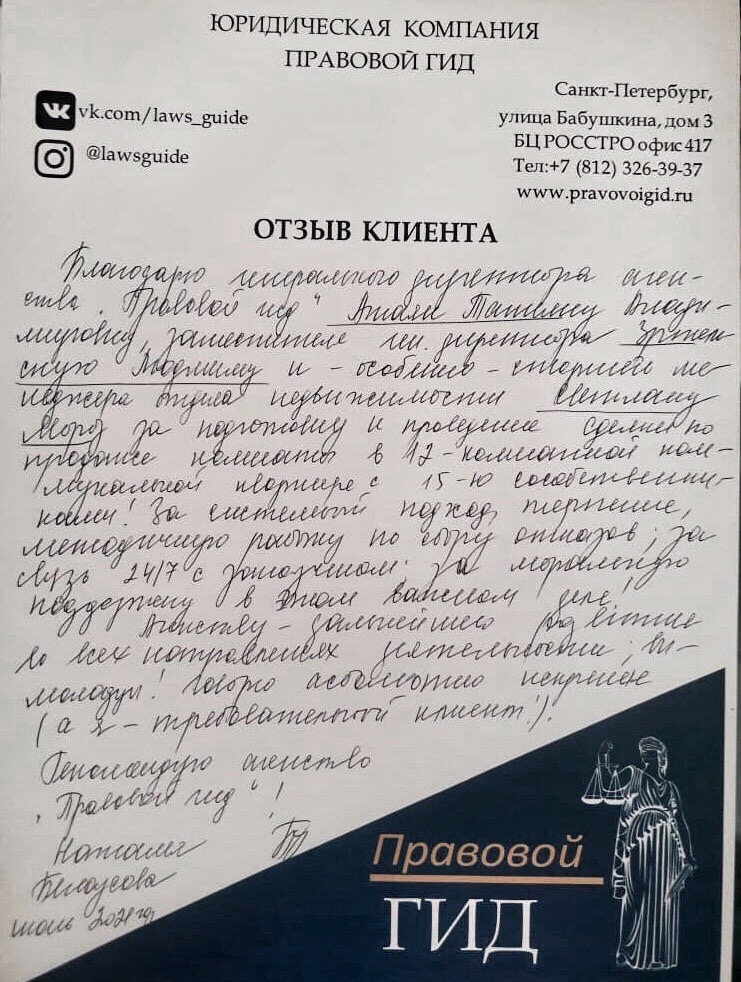 ЮРИДИЧЕСКАЯ КОМПАНИЯ
ПРАВОВОЙ ГИД
vk.com/laws_guide
@lawsguide
Санкт-Петербург,
улица Бабушкина, дом 3
БЦ РОССТРО офис 417
Тел:+7 (812) 326-39-37
www.pravovoigid.ru
ОТЗЫВ КЛИЕНТА
Благодарю генерального директора аген-
ства "Правовой гид" Татьяну Влади-
мировну, заместителя ген. директора
Людмилу и - особенно - старшего ме-
неджера отдела недвижимости Светлану
Мороз за подготовку и проведение сделки по
продаже комнаты в 12-комнатной ком-
мунальной квартире с 15-ю сособственни-
ками! За системный подход, терпение,
методичную работу по сбору отказов; за
связь 24/7 с заказчиком; за моральную
поддержку в этом важном деле!
Агенству - дальнейшего развития
во всех направлениях деятельности; вы -
молодцы! Говорю абсолютно искренне
(а я - требовательный клиент!).
Рекомендую агенство
"Правовой гид"!
Наталия
Белоусова
июль 2021 год
Правовой
ГИД